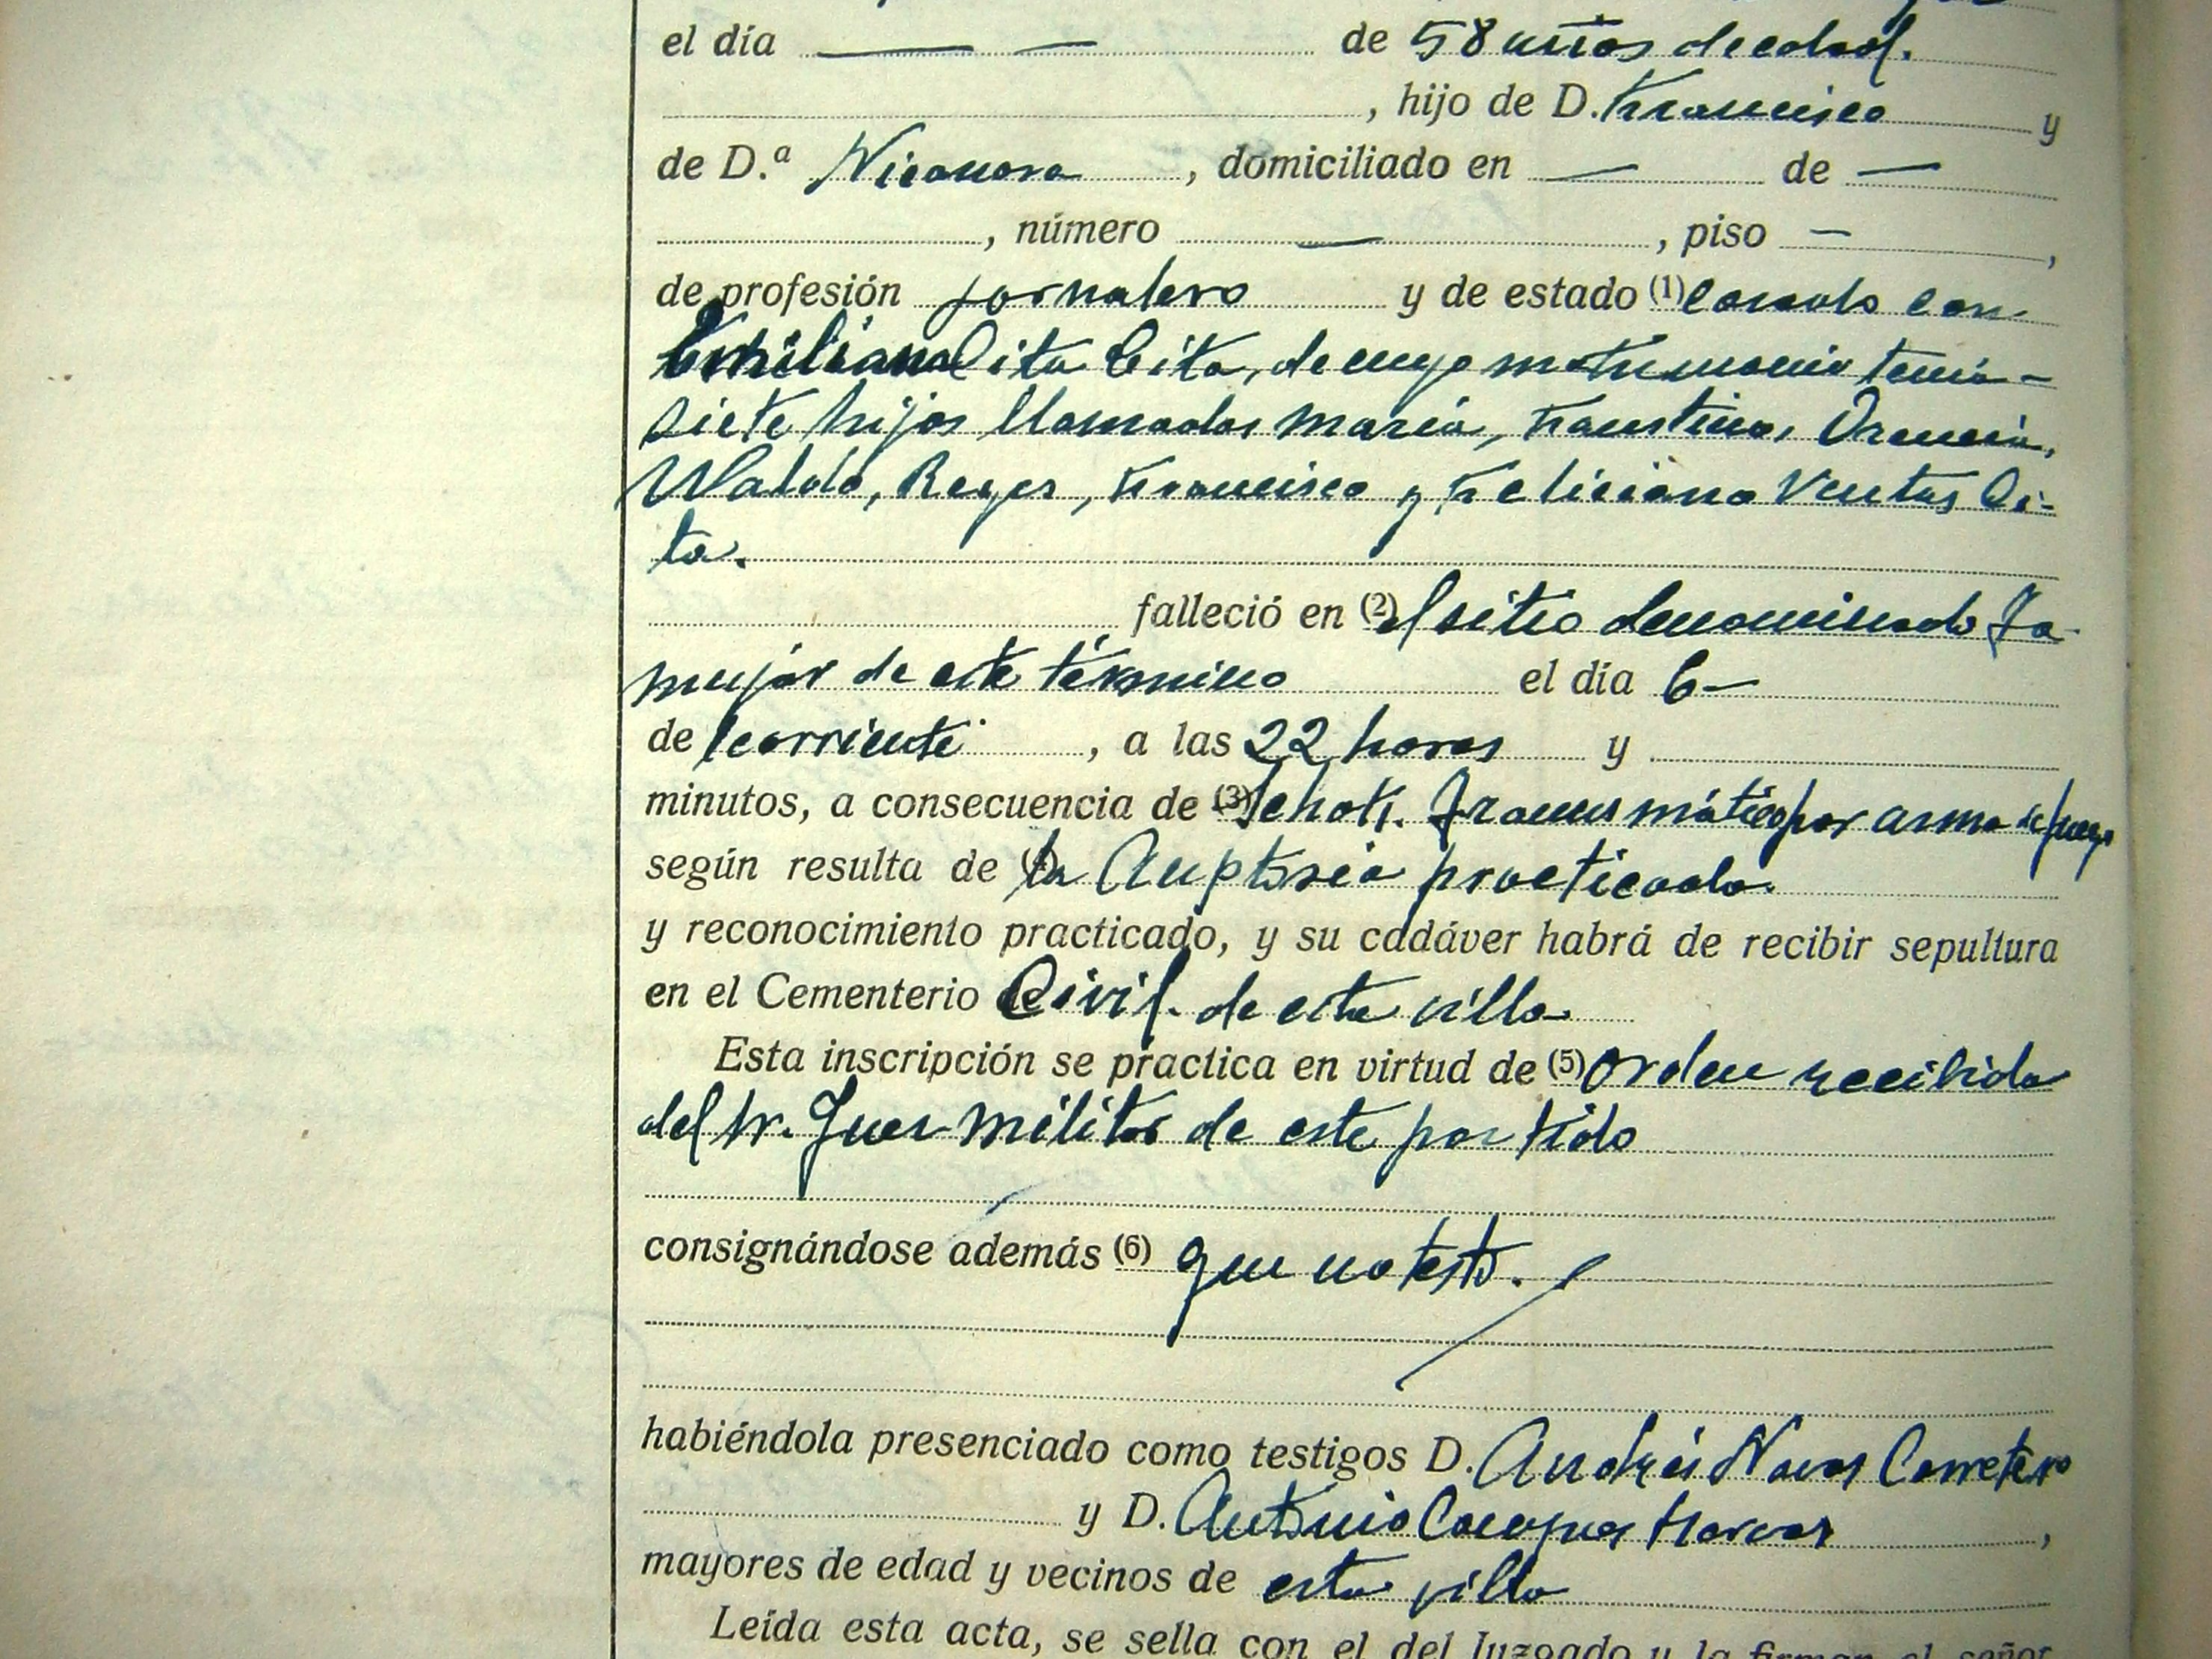 el día — — de 58 años de edad.
, hijo de D. Francisco y
de D.ª Nicanora, domiciliado en — de —
, número — , piso — ,
de profesión jornalero y de estado (1) casado con
Emiliana Cita Cita, de cuyo matrimonio tenía
siete hijos llamados María, Faustino, Orencia,
Ubaldo, Reyes, Francisco y Feliciana Ventas Ci-
ta.
falleció en (2) el sitio denominado Ja-
mujar de este término el día 6 —
de corriente, a las 22 horas y
minutos, a consecuencia de (3) Schok. Traumático por arma de fuego
según resulta de la Auptosia practicada.
y reconocimiento practicado, y su cadáver habrá de recibir sepultura
en el Cementerio Civil. de esta villa
Esta inscripción se practica en virtud de (5) orden recibida
del Sr. Juez militar de este partido
consignándose además (6) que no testó.
habiéndola presenciado como testigos D. Andrés Navas Carretero
y D. Antonio
mayores de edad y vecinos de esta villa
Leída esta acta, se sella con el del Juzgado y la firman el señor